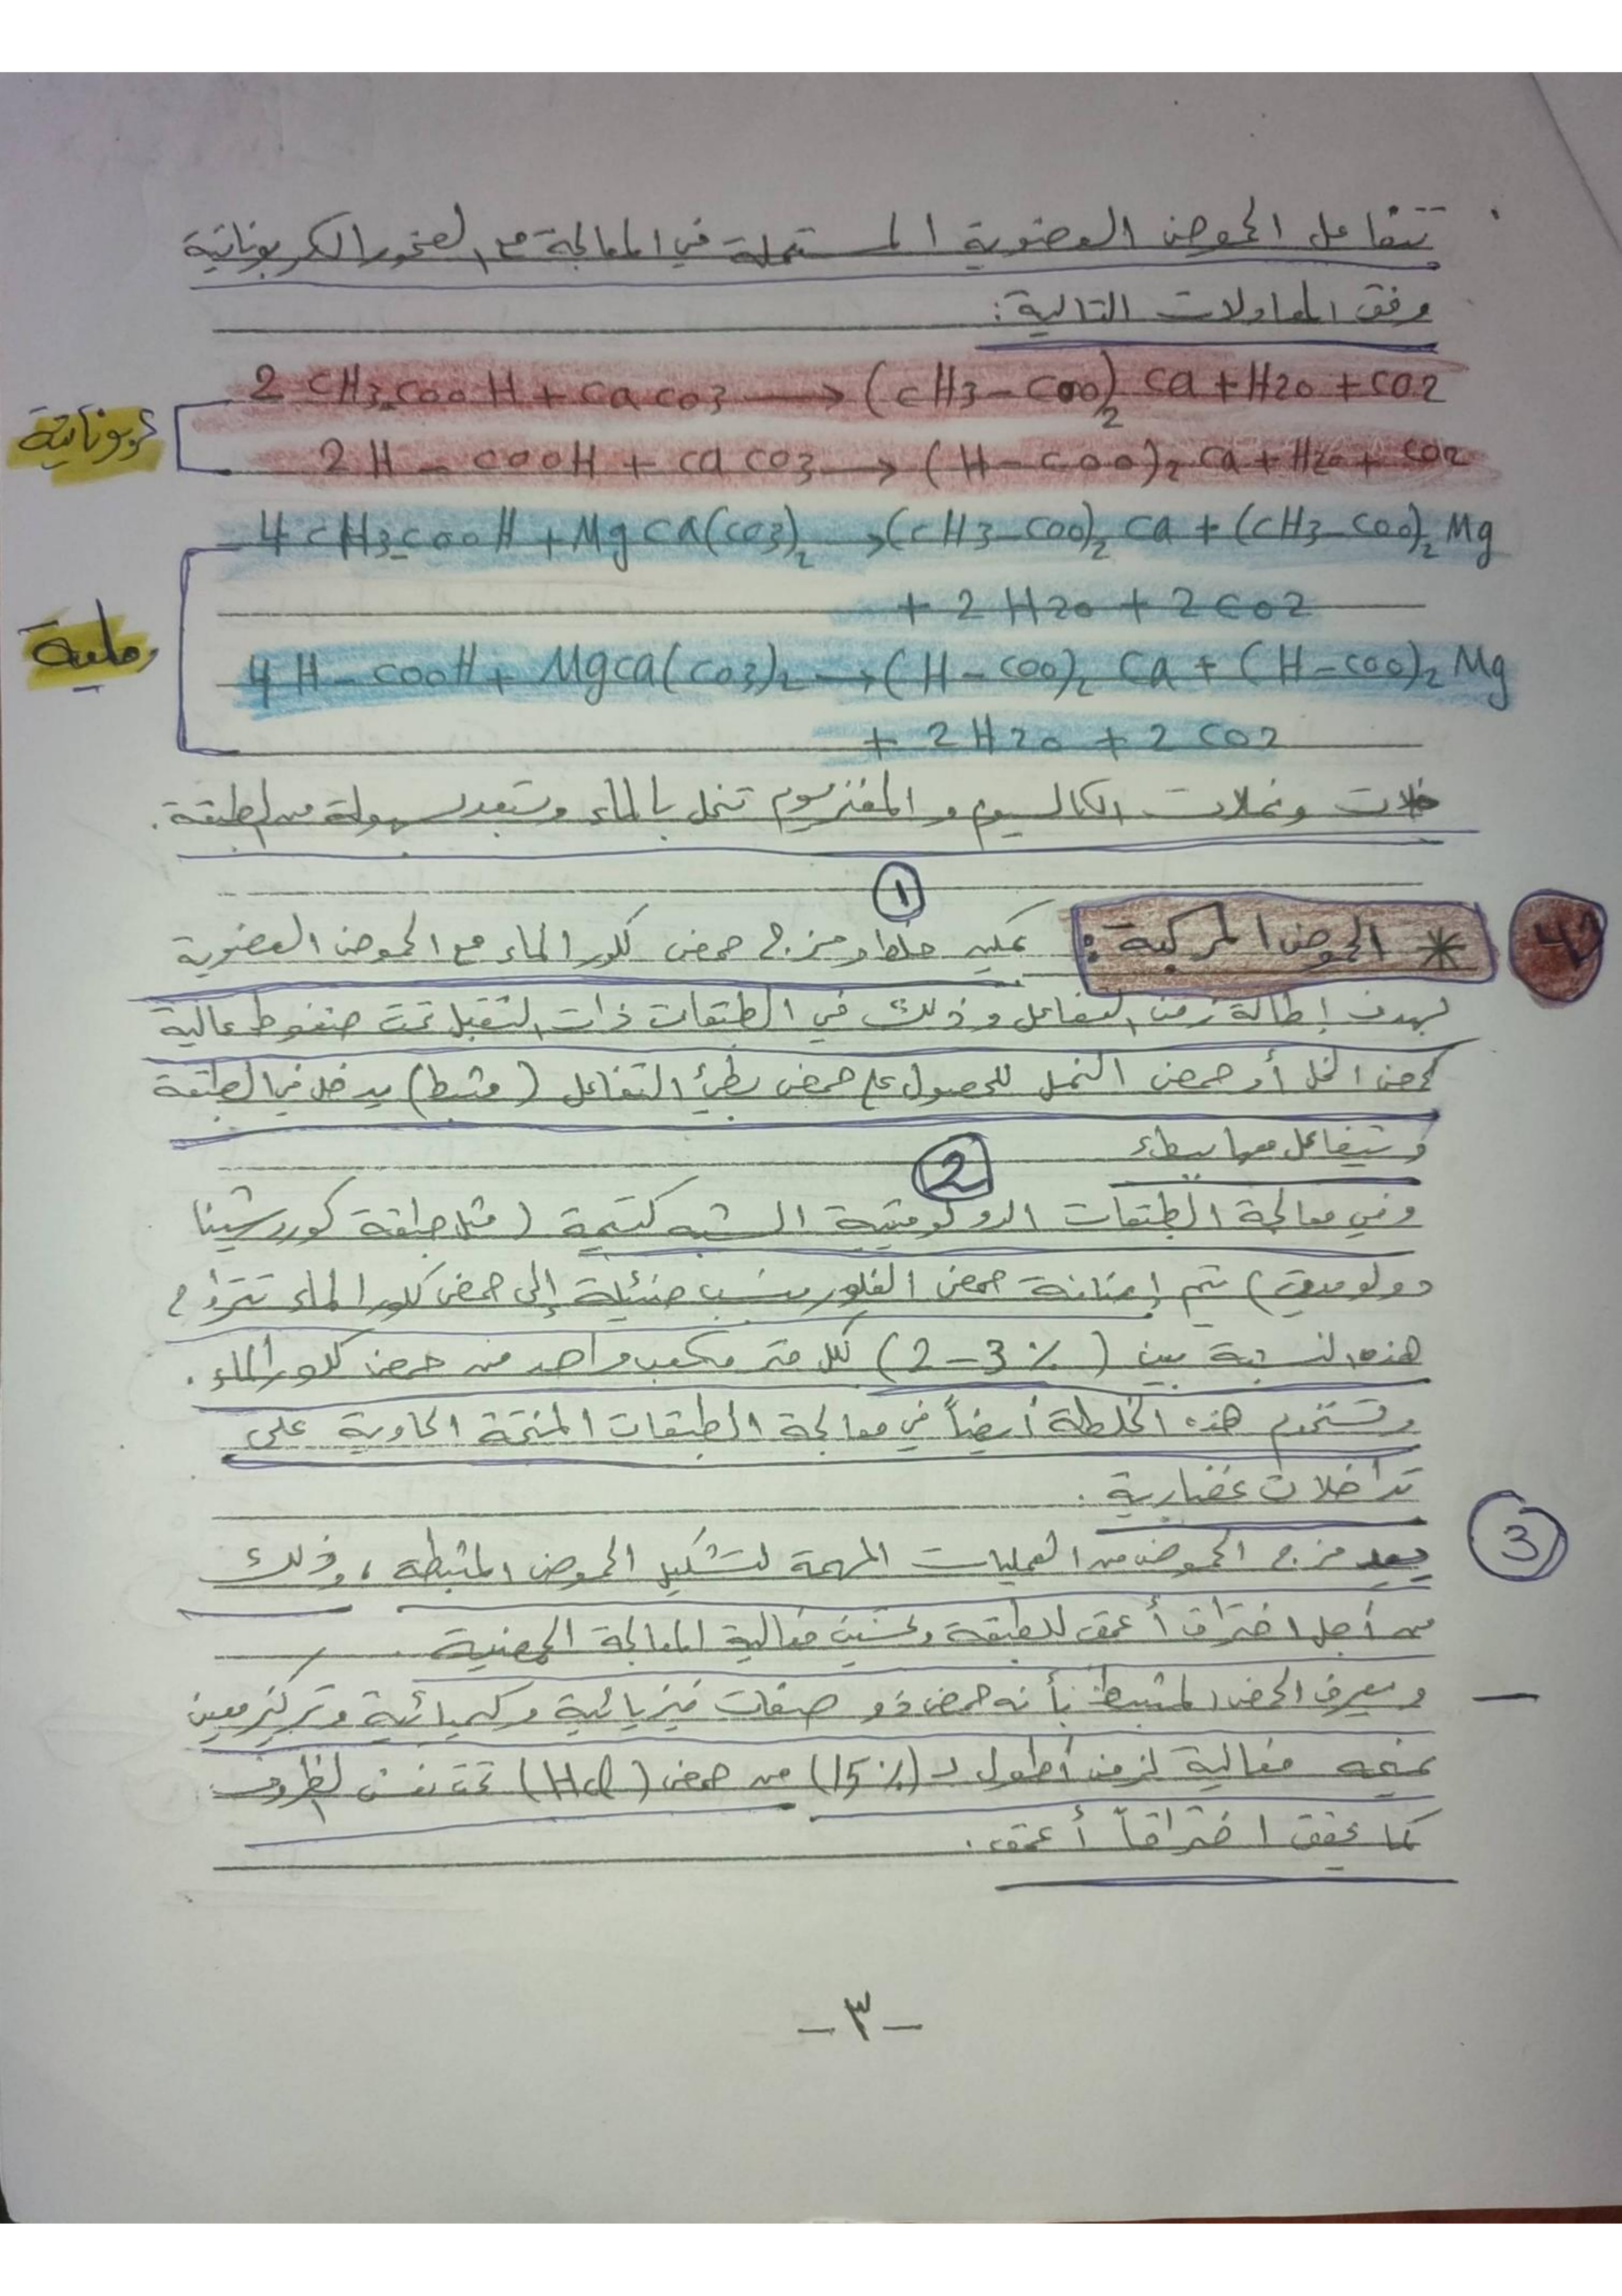 تتفاعل الحموض العضوية المستعملة في المعالجة مع الصخور الكربوناتية
وفق المعادلات التالية:
2 CH3-COOH + CaCO3 → (CH3-COO)2 Ca + H2O + CO2
كربوناتية
2H-COOH + CaCO3 → (H-COO)2 Ca + H2O + CO2
4 CH3-COOH + MgCa(CO3)2 → (CH3-COO)2 Ca + (CH3-COO)2 Mg
+ 2 H2O + 2 CO2
رملية
4 H-COOH + MgCa(CO3)2 → (H-COO)2 Ca + (H-COO)2 Mg
+ 2 H2O + 2 CO2
خلات ونملات الكالسيوم والمغنزيوم تنحل بالماء وتبعد بسهولة من الطبقة.
4 * الحموض المركبة: ① يمكن خلط ومزج حمض كلور الماء مع الحموض العضوية
بهدف إطالة زمن التفاعل وذلك في الطبقات ذات التقبل تحت ضغوط عالية
كحمض الخل أو حمض النمل للحصول على حمض بطيء التفاعل (مثبط) يدخل في الطبقة
و يتفاعل معها ببطء
②
وفي معالجة الطبقات الدولوميتية الشبه كتيمة (مثل طبقة كوراشينا
دولوميت) تتم إضافة حمض الفلور بنسب ضئيلة إلى حمض كلور الماء تتراوح
هذه النسبة بين (2-3 %) لكل متر مكعب واحد من حمض كلور الماء.
وتستخدم هذه الخلطة أيضاً في معالجة الطبقات المنتجة الحاوية على
تداخلات غضارية.
③ يعد مزج الحموض من العمليات المهمة لتشكيل الحموض المثبطة، وذلك
من أجل اختراق أعمق للطبقة وتحسين فعالية المعالجة الحمضية.
- ويعرف الحمض المثبط بأنه حمض ذو صفات فيزيائية وكيميائية وتركيز معين
تمنحه فعالية لزمن أطول لـ (15%) من حمض (HCl) تحت نفس الظروف
كما يحقق اختراقاً أعمق.
-٣-